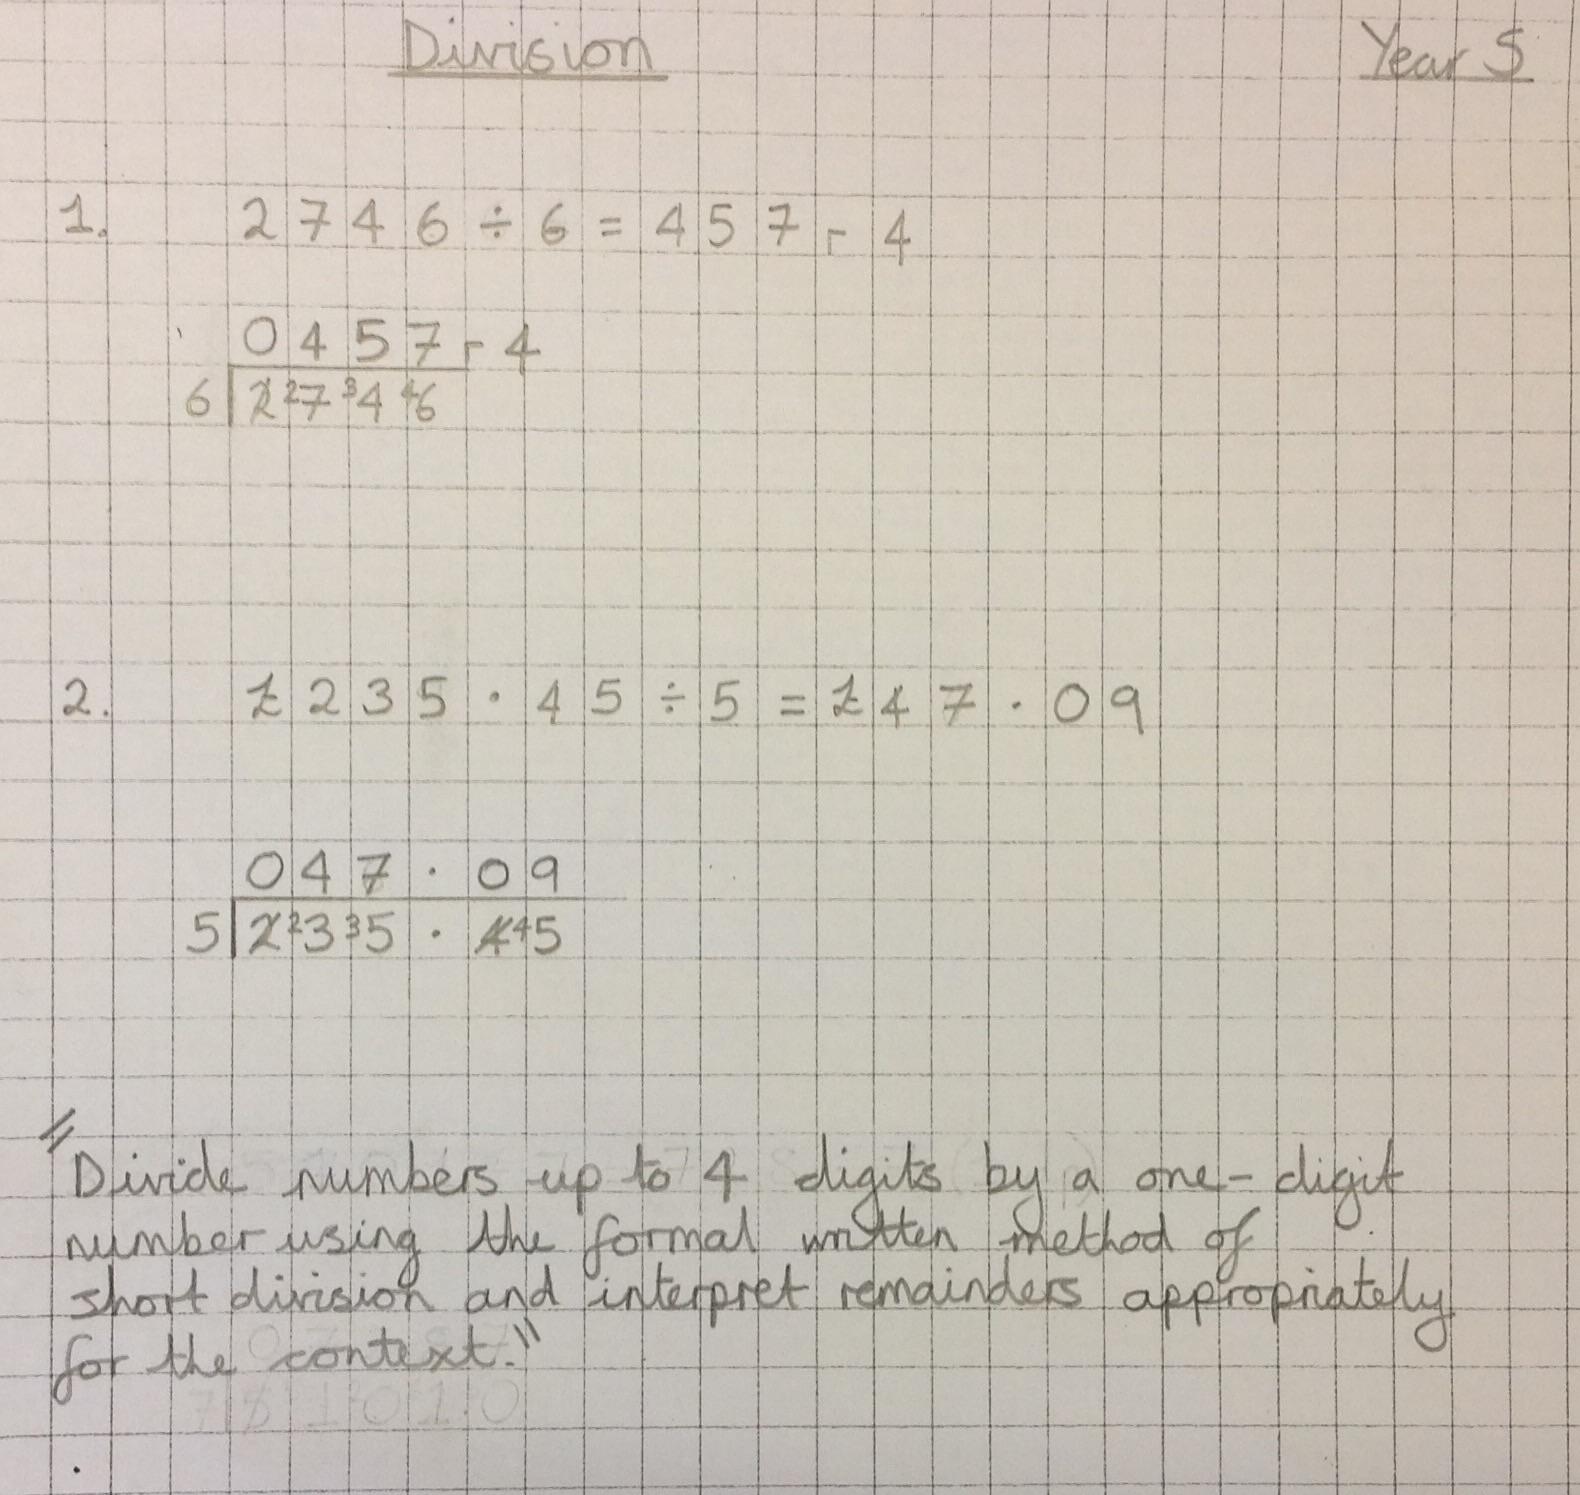 Division Year 5
1. 2746 ÷ 6 = 457 r 4
0457 r 4
6 2 ²7 ³4 ⁴6
2. £235.45 ÷ 5 = £47.09
047.09
5 2 ²3 ³5 . 4 ⁴5
"Divide numbers up to 4 digits by a one-digit
number using the formal written method of
short division and interpret remainders appropriately
for the context."